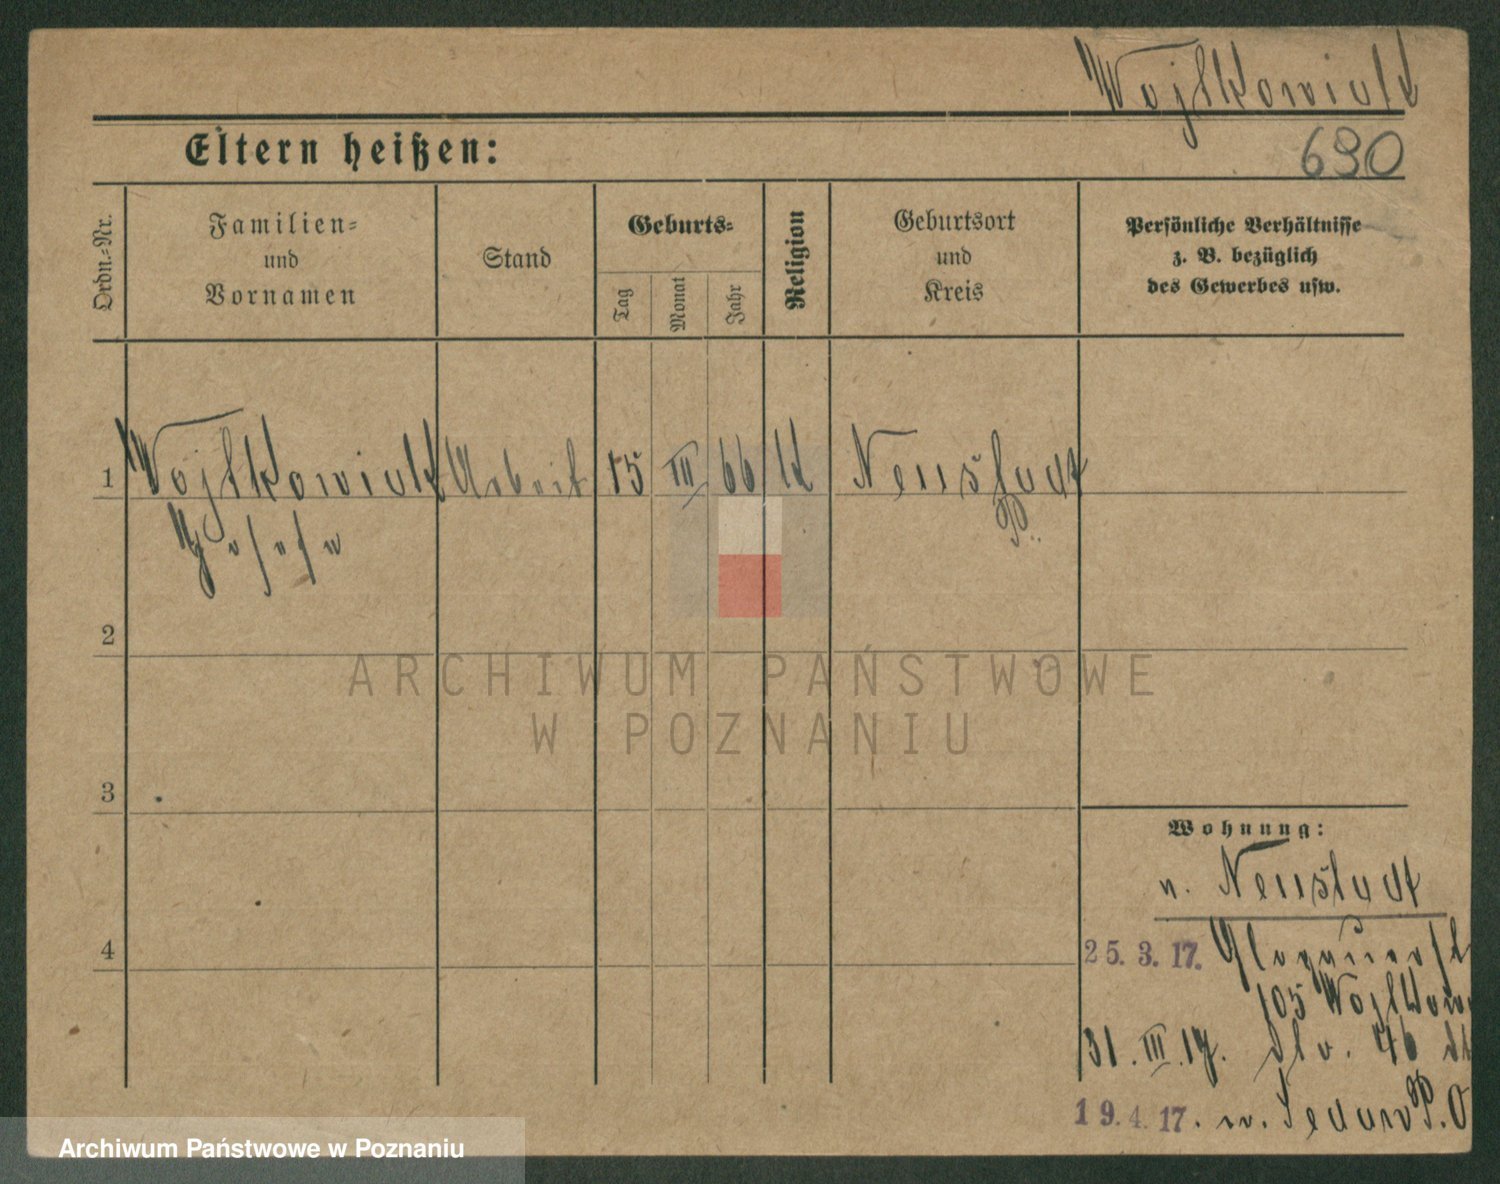 Wojtkowiak
690
Eltern heißen:
Ordn.-Nr.
Familien-
und
Vornamen
Stand
Geburts-
Tag
Monat
Jahr
Religion
Geburtsort
und
Kreis
Persönliche Verhältnisse
z. B. bezüglich
des Gewerbes usw.
1 Wojtkowiak Arbeit 15 III 66 K Neustadt
P.
2
3
4
Wohnung:
n. Neustadt
25. 3. 17.
105
31. III. 17. 46
19. 4. 17. P. O
ARCHIWUM PAŃSTWOWE
W POZNANIU
Archiwum Państwowe w Poznaniu